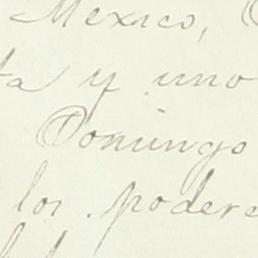 Mexico,
ta y uno
Domingo
los podere